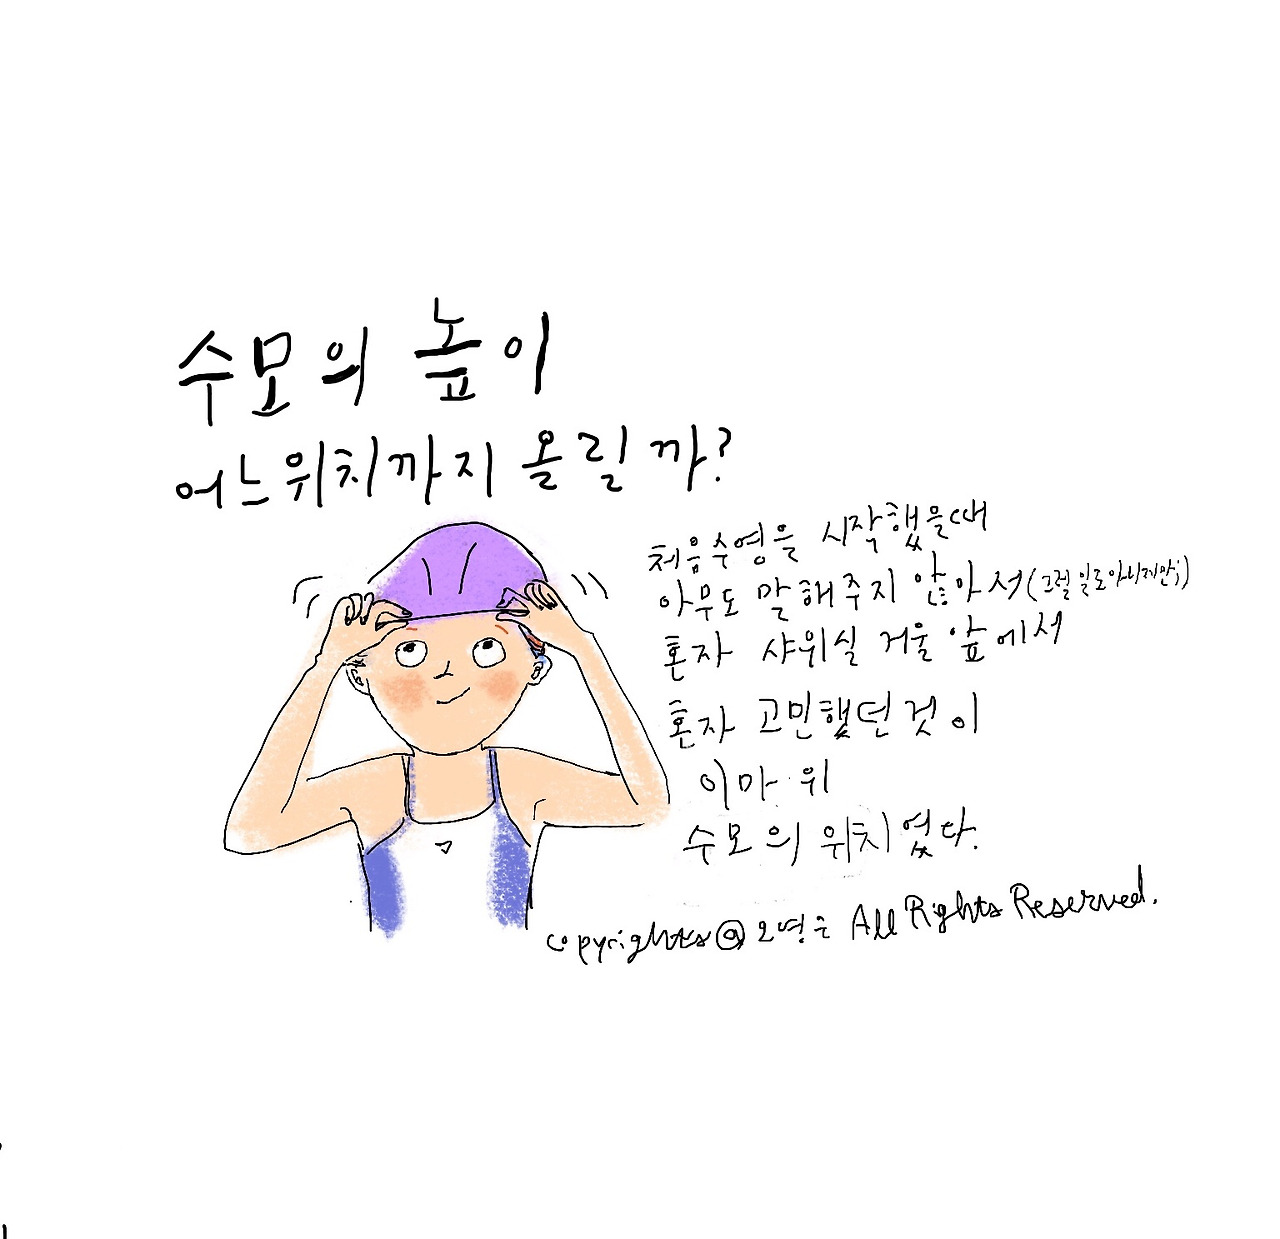 수모의 높이
어느위치까지 올릴까?
처음수영을 시작했을때
아무도 말해주지 않아서(그럴일로아니지만;)
혼자 샤워실 거울 앞에서
혼자 고민했던것이
이마 위
수모의 위치였다.
copyrights@오영은 All Rights Reserved.